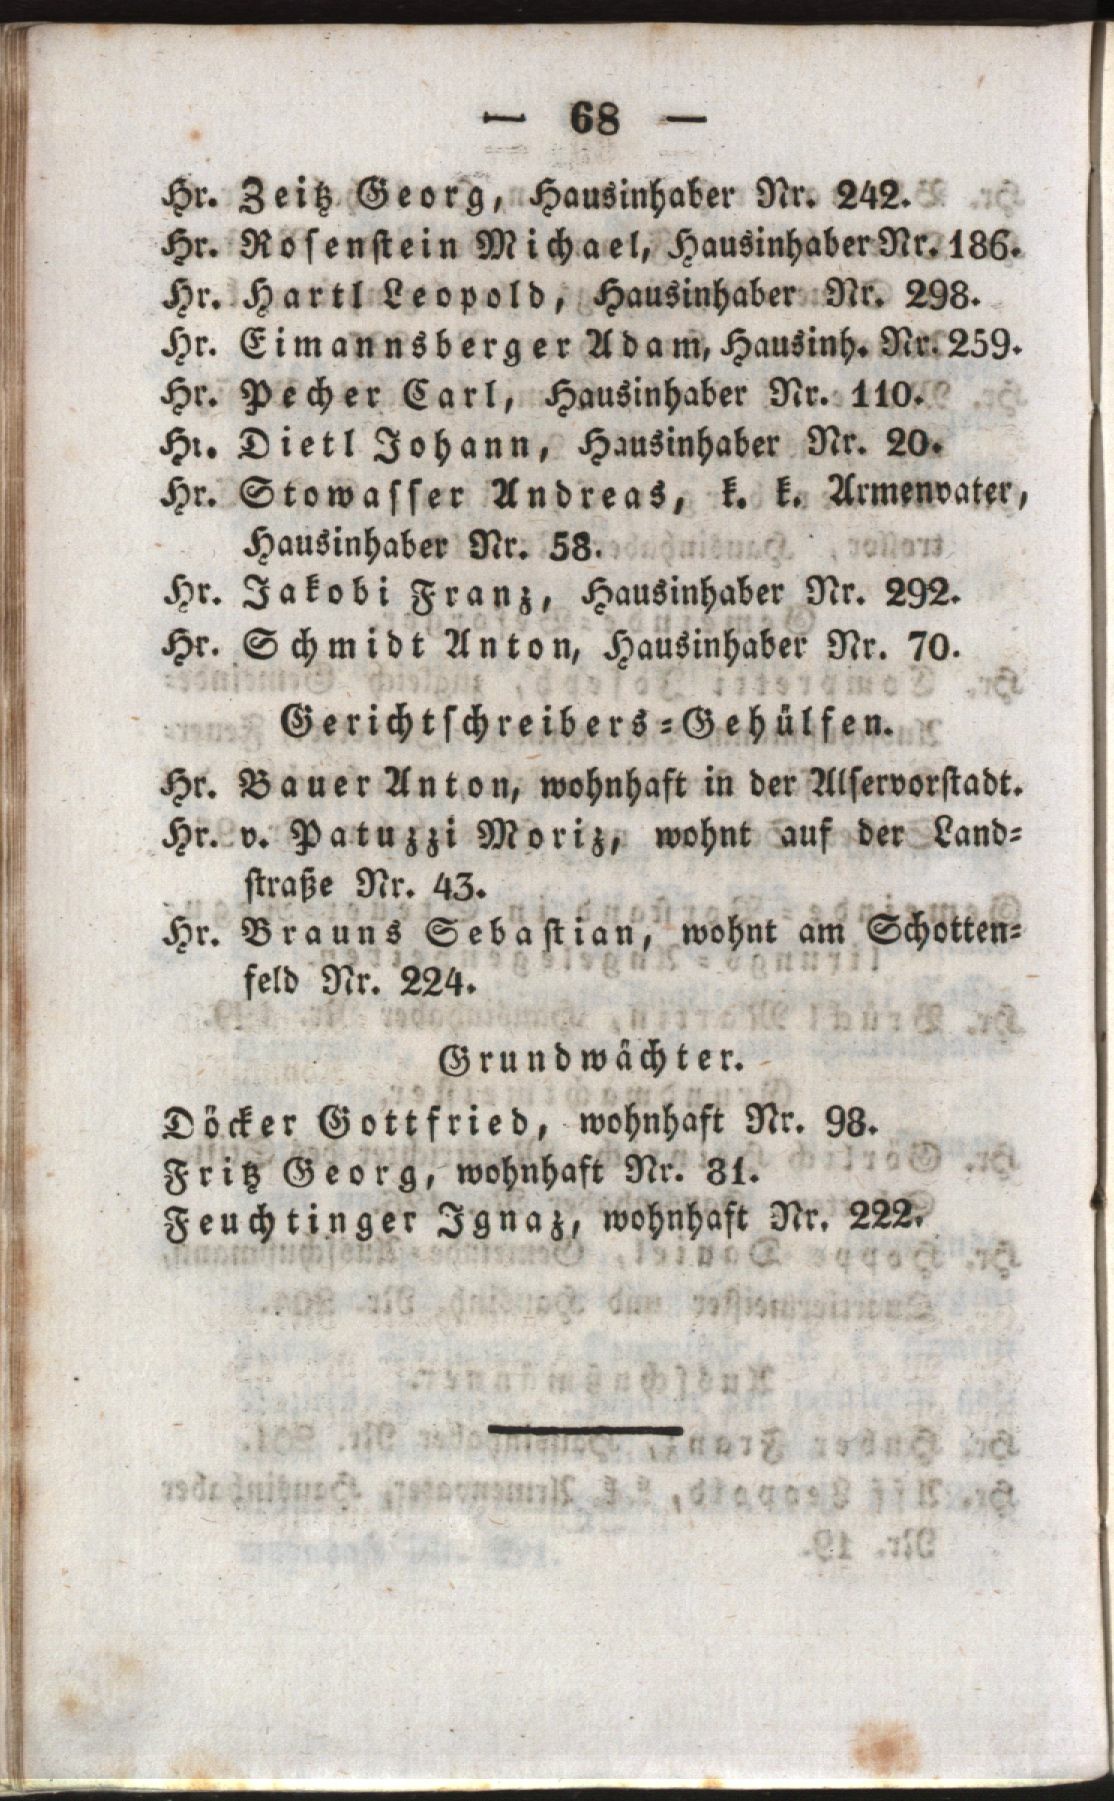 — 68 —
Hr. Zeitz Georg, Hausinhaber Nr. 242.
Hr. Rosenstein Michael, Hausinhaber Nr. 186.
Hr. Hartl Leopold, Hausinhaber Nr. 298.
Hr. Eimannsberger Adam, Hausinh. Nr. 259.
Hr. Pecher Carl, Hausinhaber Nr. 110.
Hr. Dietl Johann, Hausinhaber Nr. 20.
Hr. Stowasser Andreas, k. k. Armenvater,
Hausinhaber Nr. 58.
Hr. Jakobi Franz, Hausinhaber Nr. 292.
Hr. Schmidt Anton, Hausinhaber Nr. 70.
Gerichtschreibers=Gehülfen.
Hr. Bauer Anton, wohnhaft in der Alservorstadt.
Hr. v. Patuzzi Moriz, wohnt auf der Land=
straße Nr. 43.
Hr. Brauns Sebastian, wohnt am Schotten=
feld Nr. 224.
Grundwächter.
Döcker Gottfried, wohnhaft Nr. 98.
Fritz Georg, wohnhaft Nr. 81.
Feuchtinger Ignaz, wohnhaft Nr. 222.